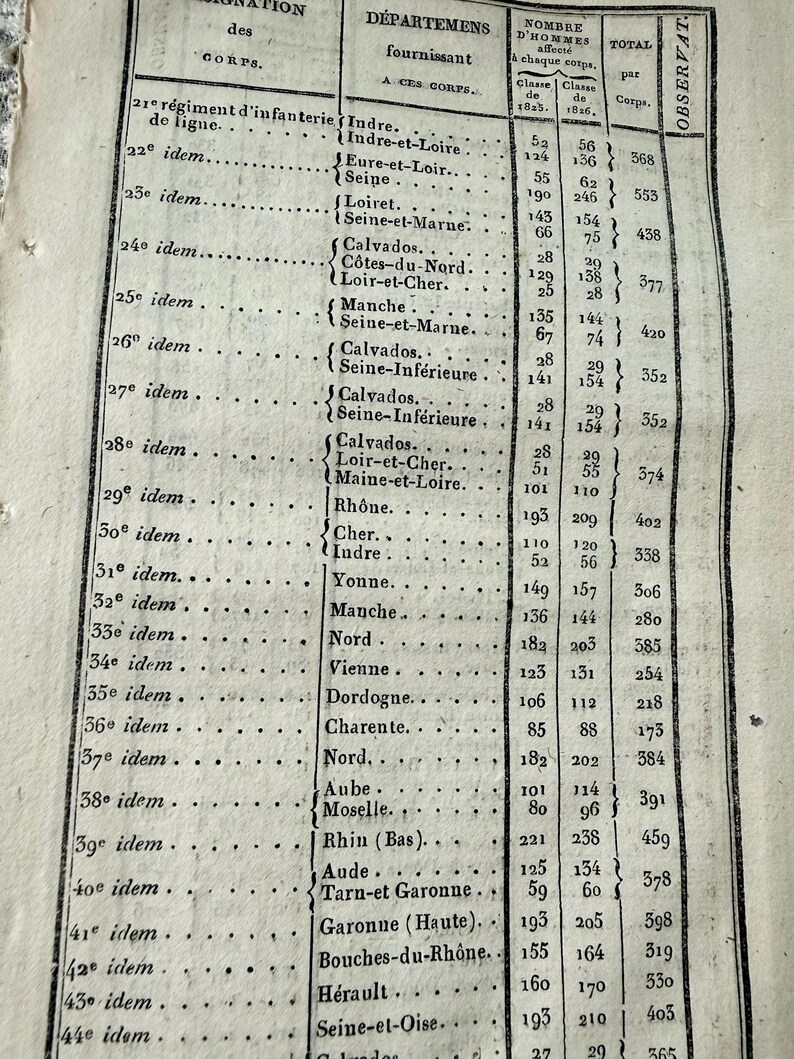 SIGNATION des CORPS.
DÉPARTEMENS fournissant A CES CORPS.
NOMBRE D'HOMMES affecté à chaque corps.
Classe de 1825.
Classe de 1826.
TOTAL par Corps.
OBSERVAT.
21e régiment d'infanterie { Indre. . . . . . . 52 56 }
de ligne. . . . . . Indre-et-Loire . . . 124 136 } 368
22e idem. . . . . . { Eure-et-Loir. . . . 55 62 }
Seine . . . . . . . 190 246 } 553
23e idem. . . . . . { Loiret. . . . . . . 143 154 }
Seine-et-Marne. . . 66 75 } 438
24e idem. . . . . . { Calvados. . . . . . 28 29 }
Côtes-du-Nord. . . 129 138 } 377
Loir-et-Cher. . . . 25 28
25e idem . . . . . . { Manche . . . . . . 135 144 }
Seine-et-Marne. . . 67 74 } 420
26e idem . . . . . . { Calvados. . . . . . 28 29 }
Seine-Inférieure . . 141 154 } 352
27e idem . . . . . . { Calvados. . . . . . 28 29 }
Seine-Inférieure . . 141 154 } 352
28e idem . . . . . . { Calvados. . . . . . 28 29 }
Loir-et-Cher. . . . 51 55 } 374
Maine-et-Loire. . . 101 110
29e idem . . . . . . Rhône. . . . . . . 193 209 402
30e idem . . . . . . { Cher. . . . . . . . 110 120 }
Indre . . . . . . . 52 56 } 338
31e idem. . . . . . . Yonne. . . . . . . 149 157 306
32e idem . . . . . . Manche . . . . . . 136 144 280
33e idem . . . . . . Nord . . . . . . . 182 203 385
34e idem . . . . . . Vienne . . . . . . 123 131 254
35e idem . . . . . . Dordogne. . . . . . 106 112 218
36e idem . . . . . . Charente. . . . . . 85 88 173
37e idem . . . . . . Nord. . . . . . . . 182 202 384
38e idem . . . . . . { Aube . . . . . . . 101 114 }
Moselle. . . . . . . 80 96 } 391
39e idem . . . . . . Rhin (Bas). . . . 221 238 459
40e idem . . . . . . { Aude . . . . . . . 125 134 }
Tarn-et Garonne . . 59 60 } 378
41e idem . . . . . . Garonne (Haute). . 193 205 398
42e idem . . . . . . Bouches-du-Rhône. . 155 164 319
43e idem . . . . . . Hérault . . . . . . 160 170 330
44e idem . . . . . . Seine-et-Oise. . . . 193 210 403
Calvados. 27 29 } 365